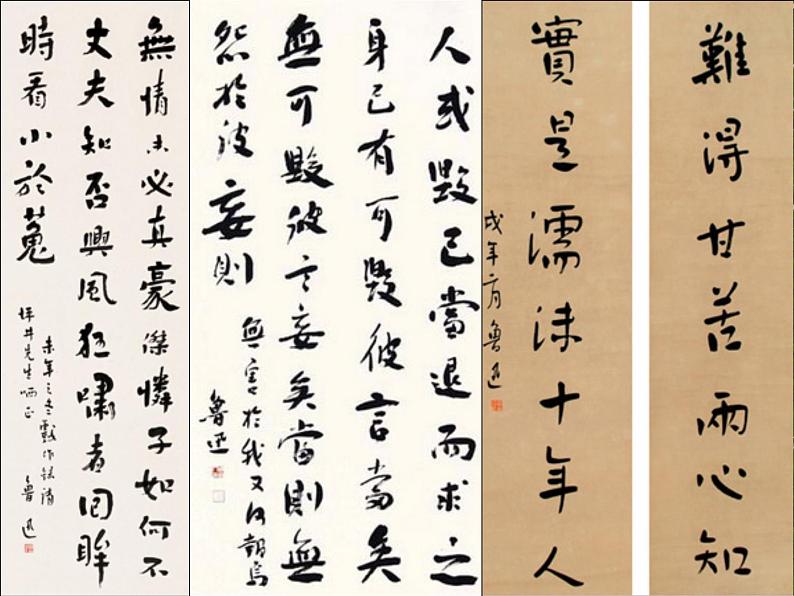 無情未必真豪傑憐子如何不
丈夫知否興風狂嘯者回眸
時看小於菟
未年之冬戲作錄請
坪井先生哂正 魯迅
人或毀己當退而求之
身己有可毀彼言當矣
無可毀彼言妄矣當則無
怨於彼妄則
無害於我又何報焉
魯迅
難得甘苦兩心知
實是濡沫十年人
戌年月魯迅